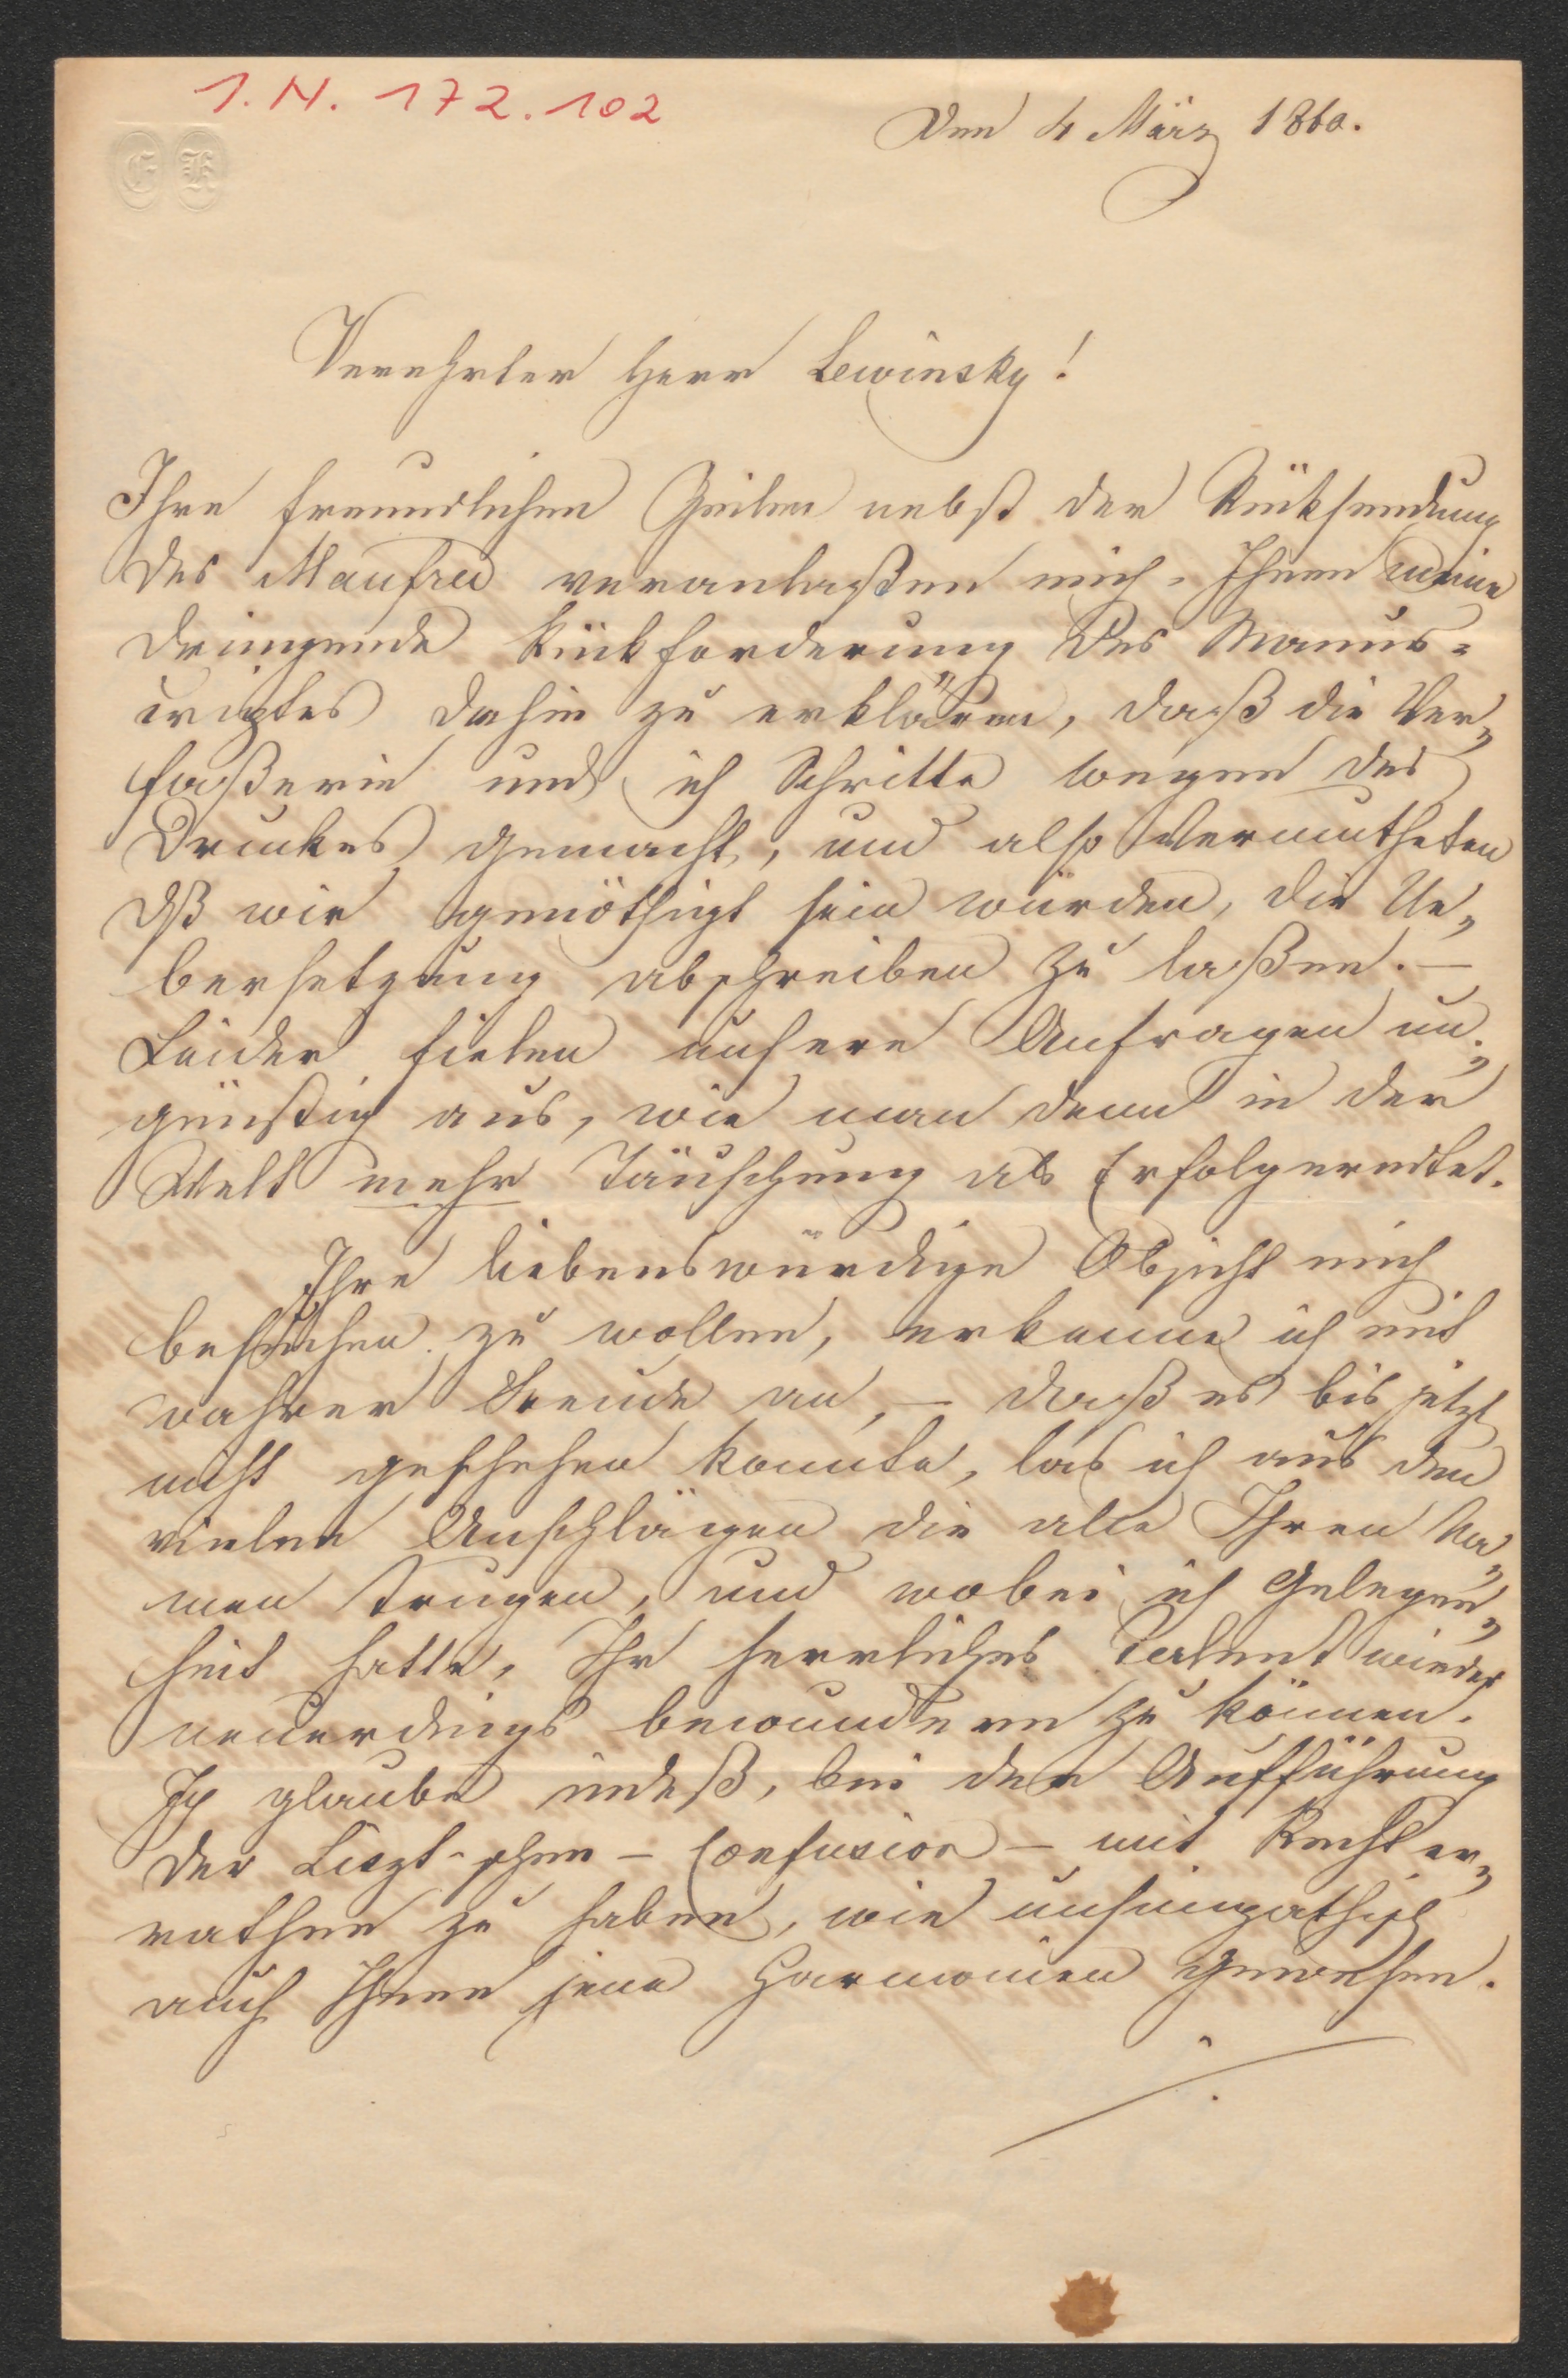 I. N. 172.102
G K
Den 4 März 1860.
Verehrter Herr Lewinsky!
Ihre freundlichen Zeilen nebst der Rücksendung
des Manfred veranlaßen mich, Ihnen meine
dringende Rückforderung des Manus=
criptes dahin zu erklären, daß die Ver„
faßerin und ich Schritte wegen des
Druckes gemacht, und also vermutheten
dß wir genöthigt sein würden, die Ue„
bersetzung abschreiben zu laßen. —
Leider fielen unsere Anfragen un„
günstig aus, wie man denn in der
Welt mehr Täuschung als Erfolg erndtet.
Ihre liebenswürdige Absicht mich
besuchen zu wollen, erkenne ich mit
wahrer Freude an, — daß es bis jetzt
nicht geschehen konnte, las ich aus den
vielen Anschlägen die alle Ihren Na„
men trugen, und wobei ich Gelegen„
heit hatte, Ihr herrliches Talent wieder
neuerdings bewundern zu können.
Ich glaube indeß, bei der Aufführung
der Liszt-schen — Confusion — mit Recht er„
rathen zu haben, wie unsimpathisch
auch Ihnen jene Harmonien gewesen.